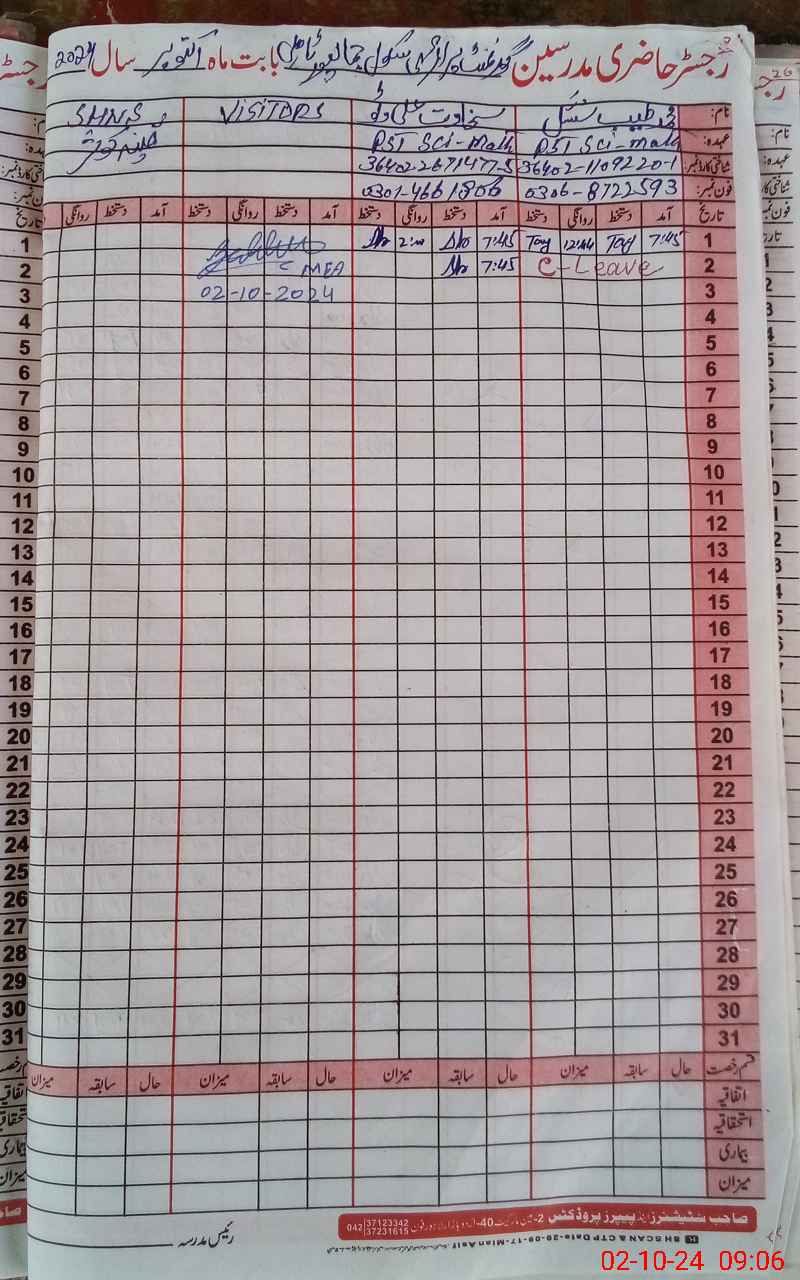 رجسٹر حاضری مدرسین گورنمنٹ پرائمری سکول بابت ماہ اکتوبر سال 2024
نام: محمد طیب سخاوت علی VISITORS SHNS
عہدہ: PST Sci-Math PST Sci-Math
شناختی کارڈ نمبر: 36402-1109220-1 36402-2671477-5
فون نمبر: 0306-8722593 0301-4661806
تاریخ آمد دستخط روانگی دستخط آمد دستخط روانگی دستخط آمد دستخط روانگی دستخط آمد دستخط روانگی
1 7:45 Tay 12:44 Tay 7:45
2 C-Leave 7:45 MEA
3 02-10-2024
4
5
6
7
8
9
10
11
12
13
14
15
16
17
18
19
20
21
22
23
24
25
26
27
28
29
30
31
قسم رخصت حال سابقہ میزان حال سابقہ میزان حال سابقہ میزان حال سابقہ میزان
اتفاقیہ
استحقاقیہ
بیماری
میزان
صاحب سٹیشنرز اینڈ پیپرز پروڈکٹس
042 37123342
37231615
رئیس مدرسہ
BH SCAN & CTP Date-20-09-17-Mian Asif
02-10-24 09:06